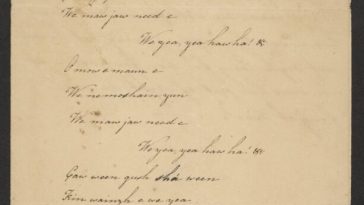 We maw jaw need e
We yea, yea haw ha! &c
O mow e maun e
We ne moshain yun
We maw jaw need e
We yea, yea haw ha! &c
Gaw ween gush sha ween
Kin wamzh e we yea